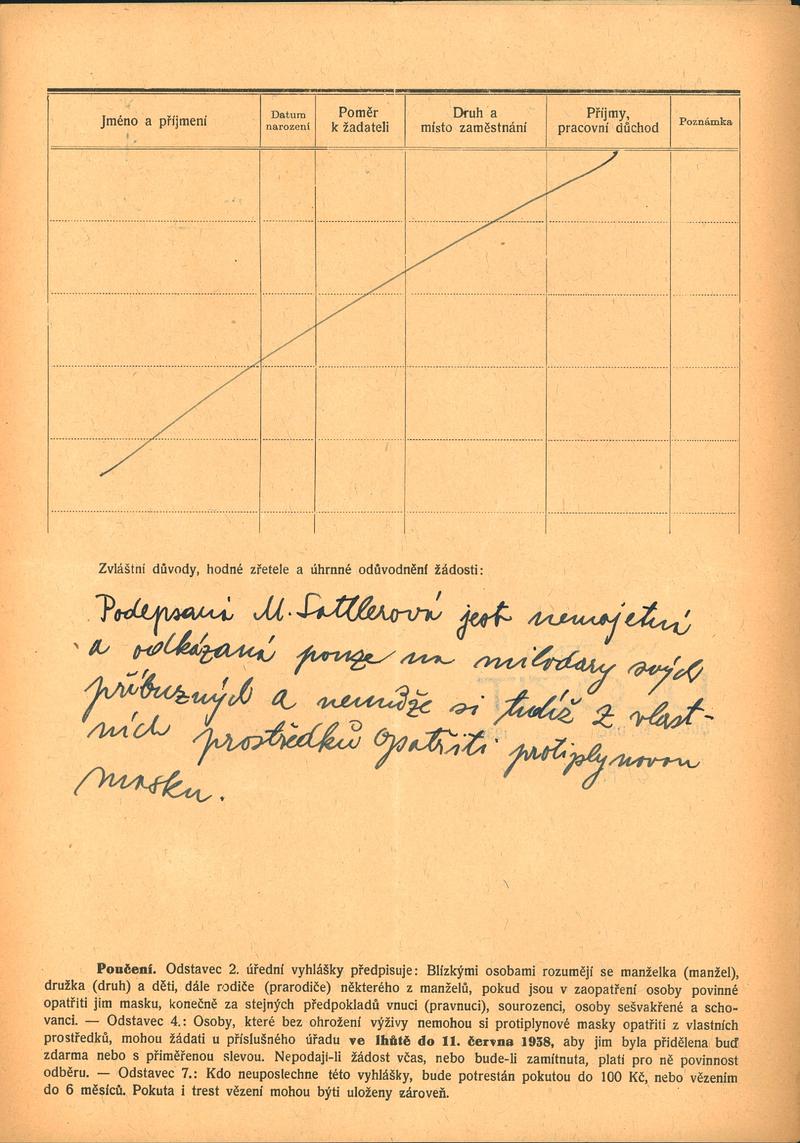 Jméno a příjmení
Datum narození
Poměr k žadateli
Druh a místo zaměstnání
Příjmy, pracovní důchod
Poznámka
Zvláštní důvody, hodné zřetele a úhrnné odůvodnění žádosti:
Podepsaná M. Sattlerová jest nemajetná
a odkázaná pouze na milodary svých
příbuzných a nemůže si tudíž z vlast-
ních prostředků opatřiti protiplynovou
masku.
Poučení. Odstavec 2. úřední vyhlášky předpisuje: Blízkými osobami rozumějí se manželka (manžel),
družka (druh) a děti, dále rodiče (prarodiče) některého z manželů, pokud jsou v zaopatření osoby povinné
opatřiti jim masku, konečně za stejných předpokladů vnuci (pravnuci), sourozenci, osoby sešvakřené a scho-
vanci. — Odstavec 4.: Osoby, které bez ohrožení výživy nemohou si protiplynové masky opatřiti z vlastních
prostředků, mohou žádati u příslušného úřadu ve lhůtě do 11. června 1938, aby jim byla přidělena buď
zdarma nebo s přiměřenou slevou. Nepodají-li žádost včas, nebo bude-li zamítnuta, platí pro ně povinnost
odběru. — Odstavec 7.: Kdo neuposlechne této vyhlášky, bude potrestán pokutou do 100 Kč, nebo vězením
do 6 měsíců. Pokuta i trest vězení mohou býti uloženy zároveň.